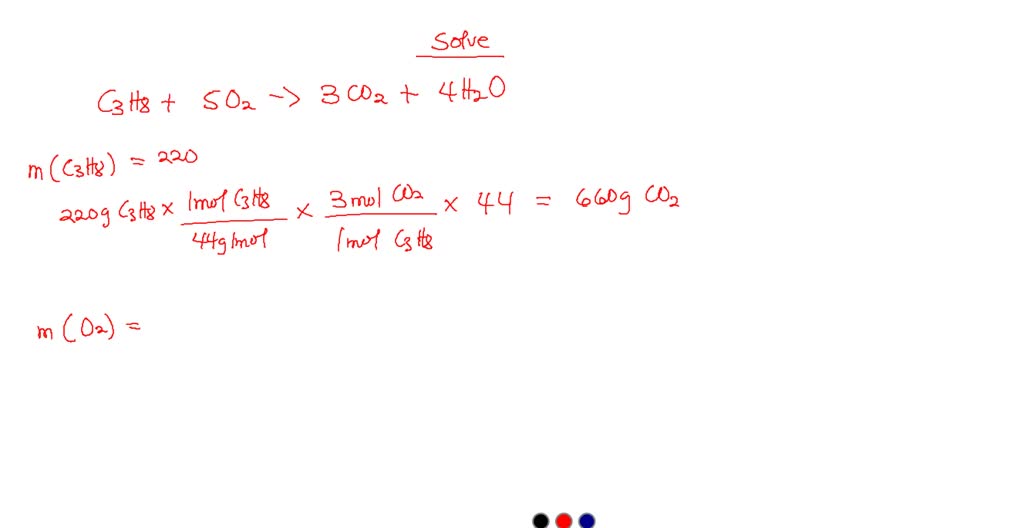 Solve
C3H8 + 5O2 -> 3CO2 + 4H2O
m(C3H8) = 220
220g C3H8 × 1mol C3H8 / 44g/mol × 3mol CO2 / 1mol C3H8 × 44 = 660g CO2
m(O2) =